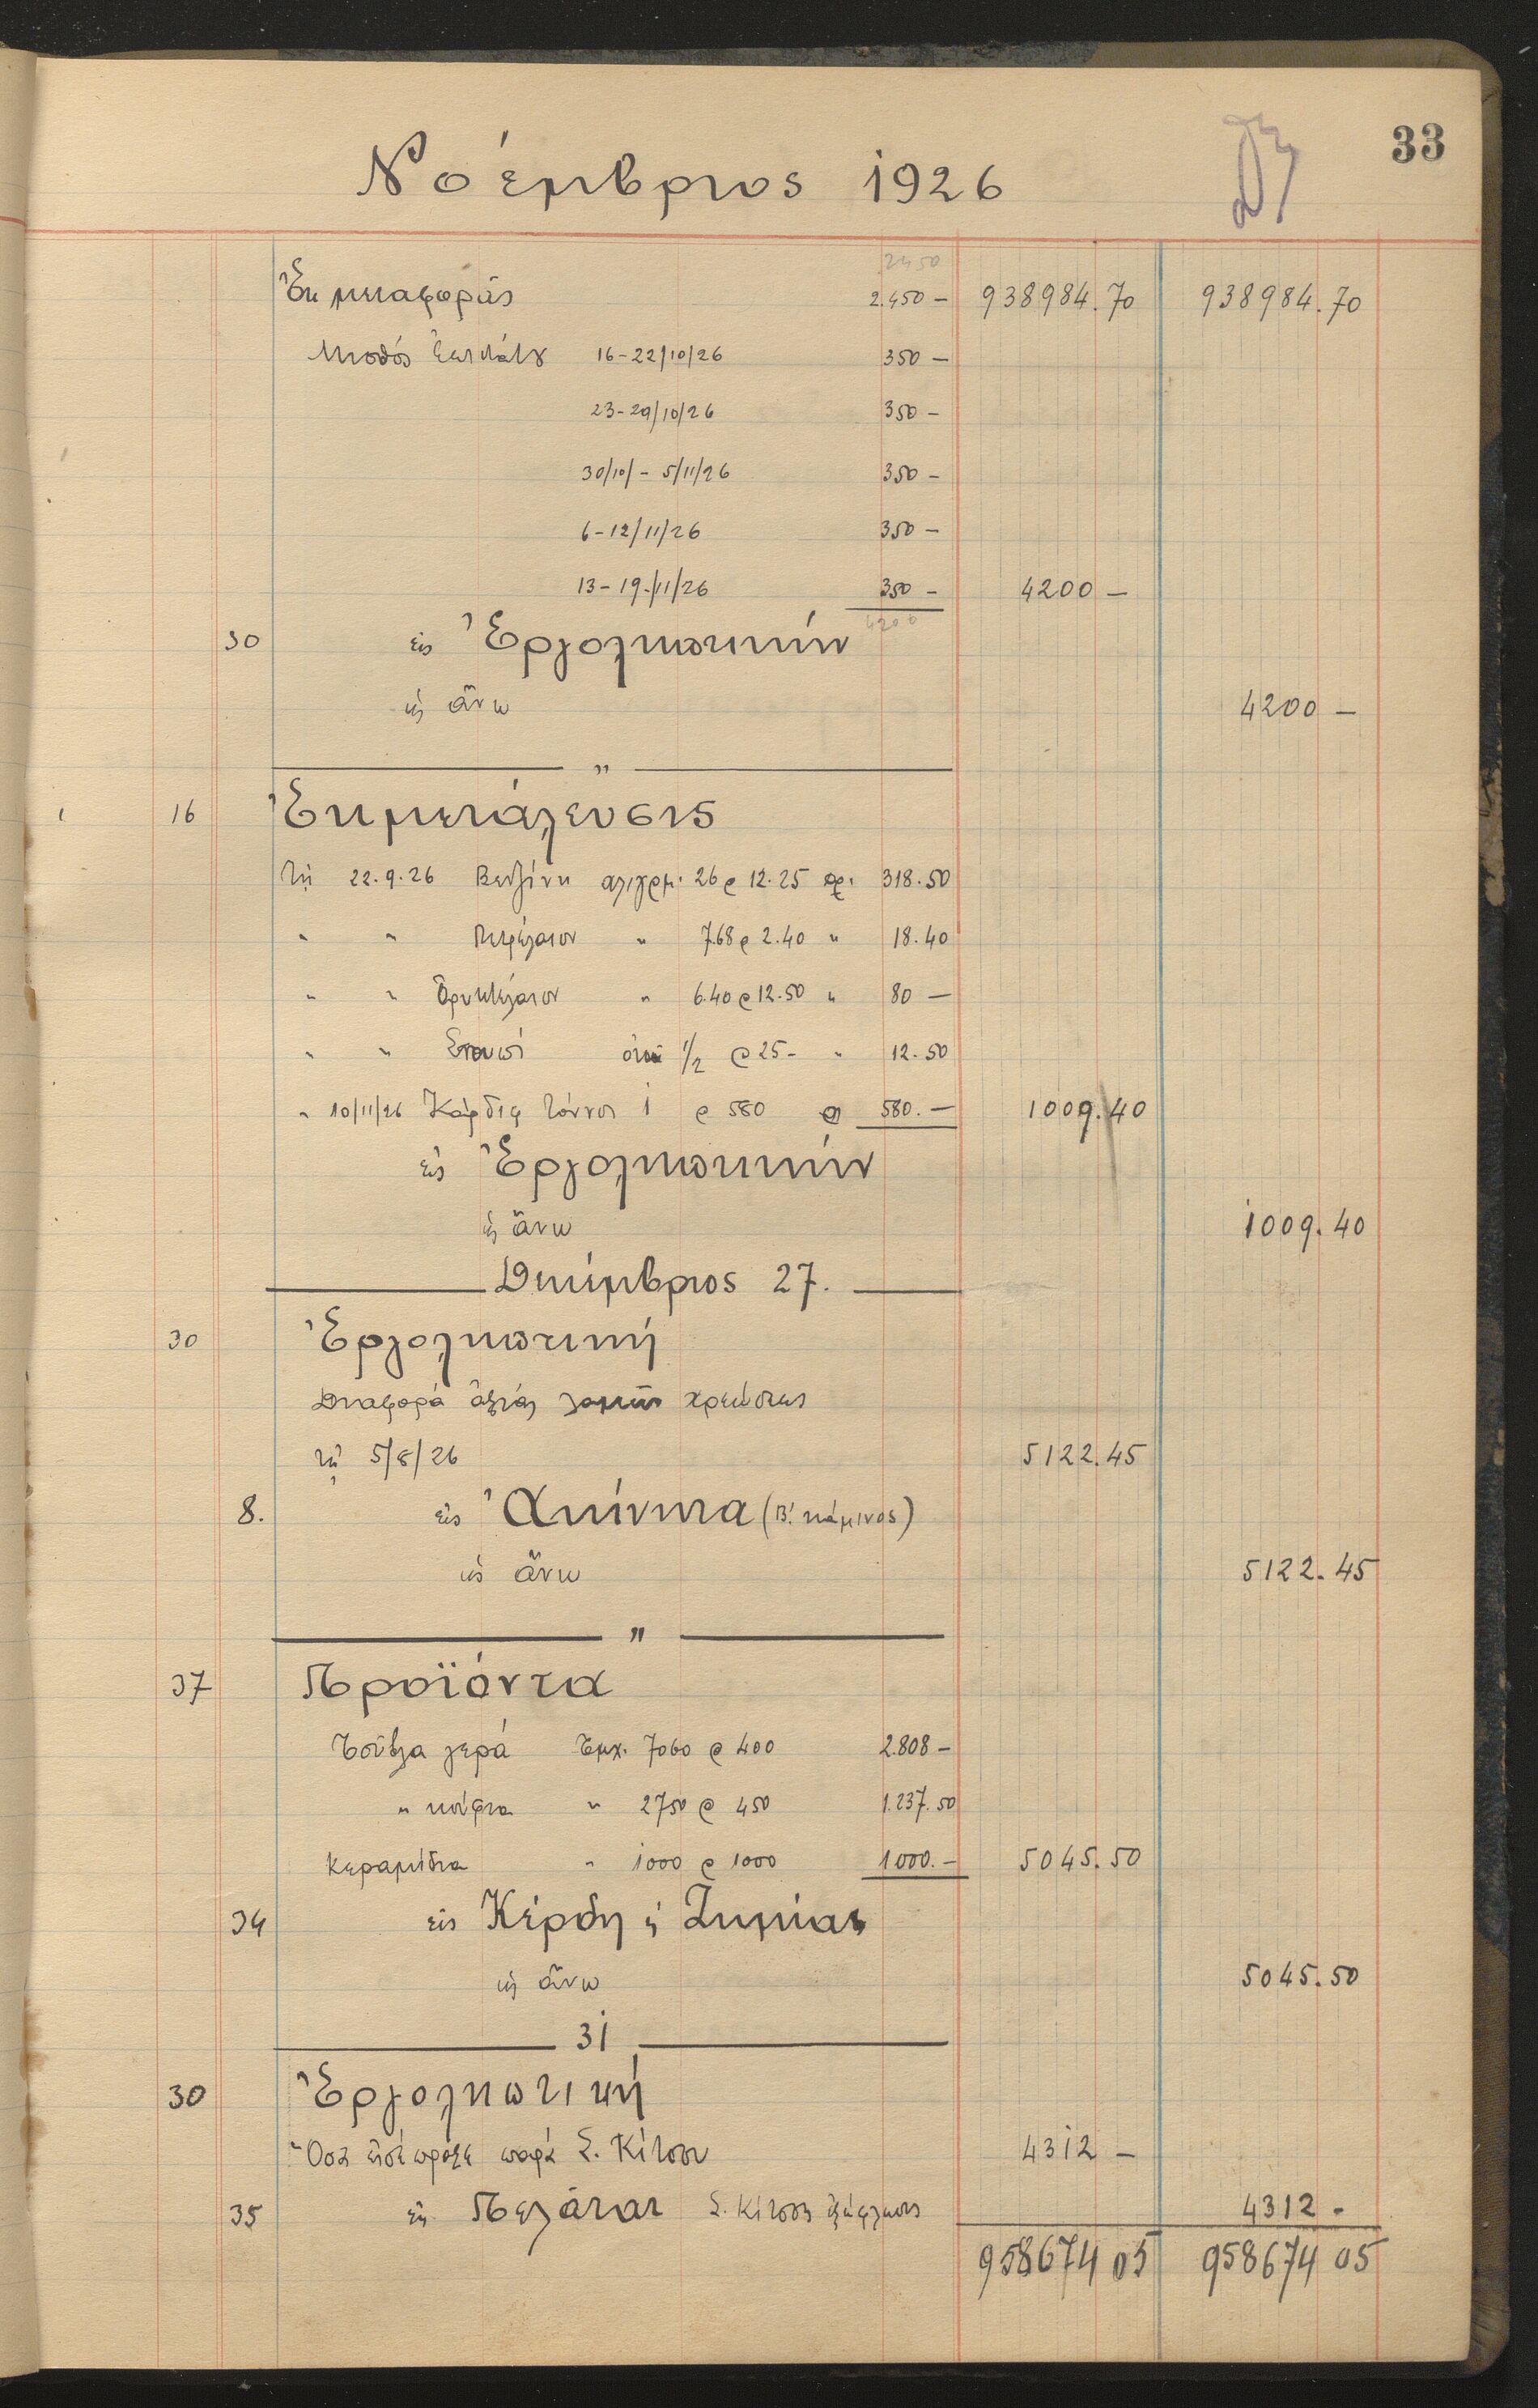 33
Νοέμβριος 1926
2450
Ἐκ μεταφορᾶς 2.450 — 938984.70 938984.70
Μισθός 16-22/10/26 350 —
23-29/10/26 350 —
30/10/ - 5/11/26 350 —
6-12/11/26 350 —
13-19/11/26 350 — 4200 —
4200
30 εἰς Ἐργοληπτικήν
ὡς ἄνω 4200 —
"
16 Ἐκμετάλευσις
τῇ 22.9.26 Βενζίνη χλγρμ. 26 @ 12.25 δρ. 318.50
" " Πετρέλαιον " 7.68 @ 2.40 " 18.40
" " Ὀρυκτέλαιον " 6.40 @ 12.50 " 80 —
" " Στουπί ὀκ. 1/2 @ 25- " 12.50
" 10/11/26 Κάρδιφ τόννοι 1 @ 580 580.— 1009.40
εἰς Ἐργοληπτικήν
ὡς ἄνω 1009.40
Δεκέμβριος 27.
30 Ἐργοληπτική
Διαφορά ἀξίας χρεώσεως
τῇ 5/8/26 5122.45
8. εἰς Ἀκίνητα (Β΄. κάμινος)
ὡς ἄνω 5122.45
"
37 Προϊόντα
Τοῦβλα γερά Τμχ. 7060 @ 400 2.808 —
" κούφια " 2750 @ 450 1.237.50
Κεραμίδια " 1000 @ 1000 1000.— 5045.50
34 εἰς Κέρδη & Ζημίας
ὡς ἄνω 5045.50
31
30 Ἐργοληπτική
Ὅσα εἰσέπραξε παρά Σ. Κίτσου 4312 —
35 εἰς Πελάται Σ. Κίτσος ἐξώφλησις 4312 -
958674 05 958674 05